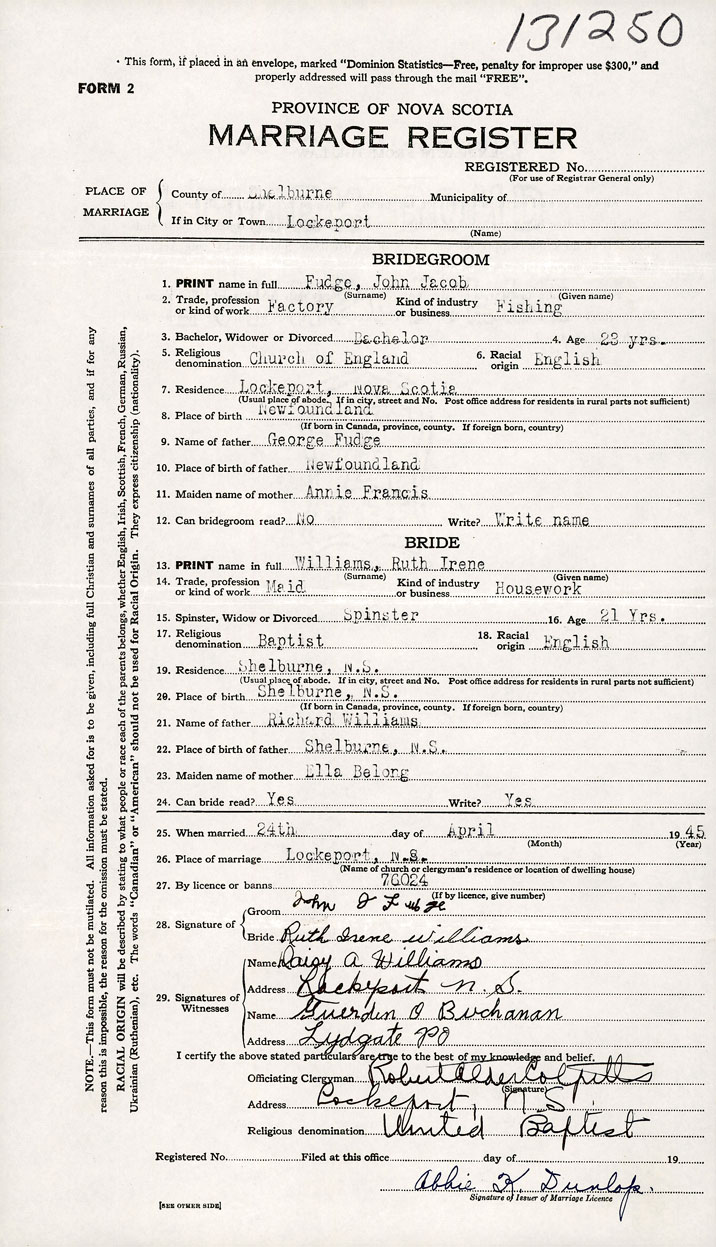 131250
· This form, if placed in an envelope, marked "Dominion Statistics—Free, penalty for improper use $300," and
properly addressed will pass through the mail "FREE".
FORM 2
PROVINCE OF NOVA SCOTIA
MARRIAGE REGISTER
REGISTERED No.
(For use of Registrar General only)
PLACE OF MARRIAGE
County of Shelburne Municipality of
If in City or Town Lockeport
(Name)
BRIDEGROOM
1. PRINT name in full Fudge, John Jacob
(Surname) (Given name)
2. Trade, profession or kind of work Factory Kind of industry or business Fishing
3. Bachelor, Widower or Divorced Bachelor 4. Age 23 yrs.
5. Religious denomination Church of England 6. Racial origin English
7. Residence Lockeport, Nova Scotia
(Usual place of abode. If in city, street and No. Post office address for residents in rural parts not sufficient)
8. Place of birth Newfoundland
(If born in Canada, province, county. If foreign born, country)
9. Name of father George Fudge
10. Place of birth of father Newfoundland
11. Maiden name of mother Annie Francis
12. Can bridegroom read? No Write? Write name
BRIDE
13. PRINT name in full Williams, Ruth Irene
(Surname) (Given name)
14. Trade, profession or kind of work Maid Kind of industry or business Housework
15. Spinster, Widow or Divorced Spinster 16. Age 21 Yrs.
17. Religious denomination Baptist 18. Racial origin English
19. Residence Shelburne, N.S.
(Usual place of abode. If in city, street and No. Post office address for residents in rural parts not sufficient)
20. Place of birth Shelburne, N.S.
(If born in Canada, province, county. If foreign born, country)
21. Name of father Richard Williams
22. Place of birth of father Shelburne, N.S.
23. Maiden name of mother Ella Belong
24. Can bride read? Yes Write? Yes
25. When married 24th day of April 1945
(Month) (Year)
26. Place of marriage Lockeport, N.S.
(Name of church or clergyman's residence or location of dwelling house)
27. By licence or banns 76024
(If by licence, give number)
28. Signature of
Groom John J Fudge
Bride Ruth Irene Williams
29. Signatures of Witnesses
Name Daisy A Williams
Address Lockeport N. S.
Name Guerdin O Buchanan
Address Lydgate PO
I certify the above stated particulars are true to the best of my knowledge and belief.
Officiating Clergyman Robert Alder Colpitts
(Signature)
Address Lockeport, N.S.
Religious denomination United Baptist
Registered No. Filed at this office day of 19
Abbie K. Dunlop.
Signature of Issuer of Marriage Licence
[SEE OTHER SIDE]
NOTE.—This form must not be mutilated. All information asked for is to be given, including full Christian and surnames of all parties, and if for any
reason this is impossible, the reason for the omission must be stated.
RACIAL ORIGIN will be described by stating to what people or race each of the parents belongs, whether English, Irish, Scottish, French, German, Russian,
Ukrainian (Ruthenian), etc. The words "Canadian" or "American" should not be used for Racial Origin. They express citizenship (nationality).